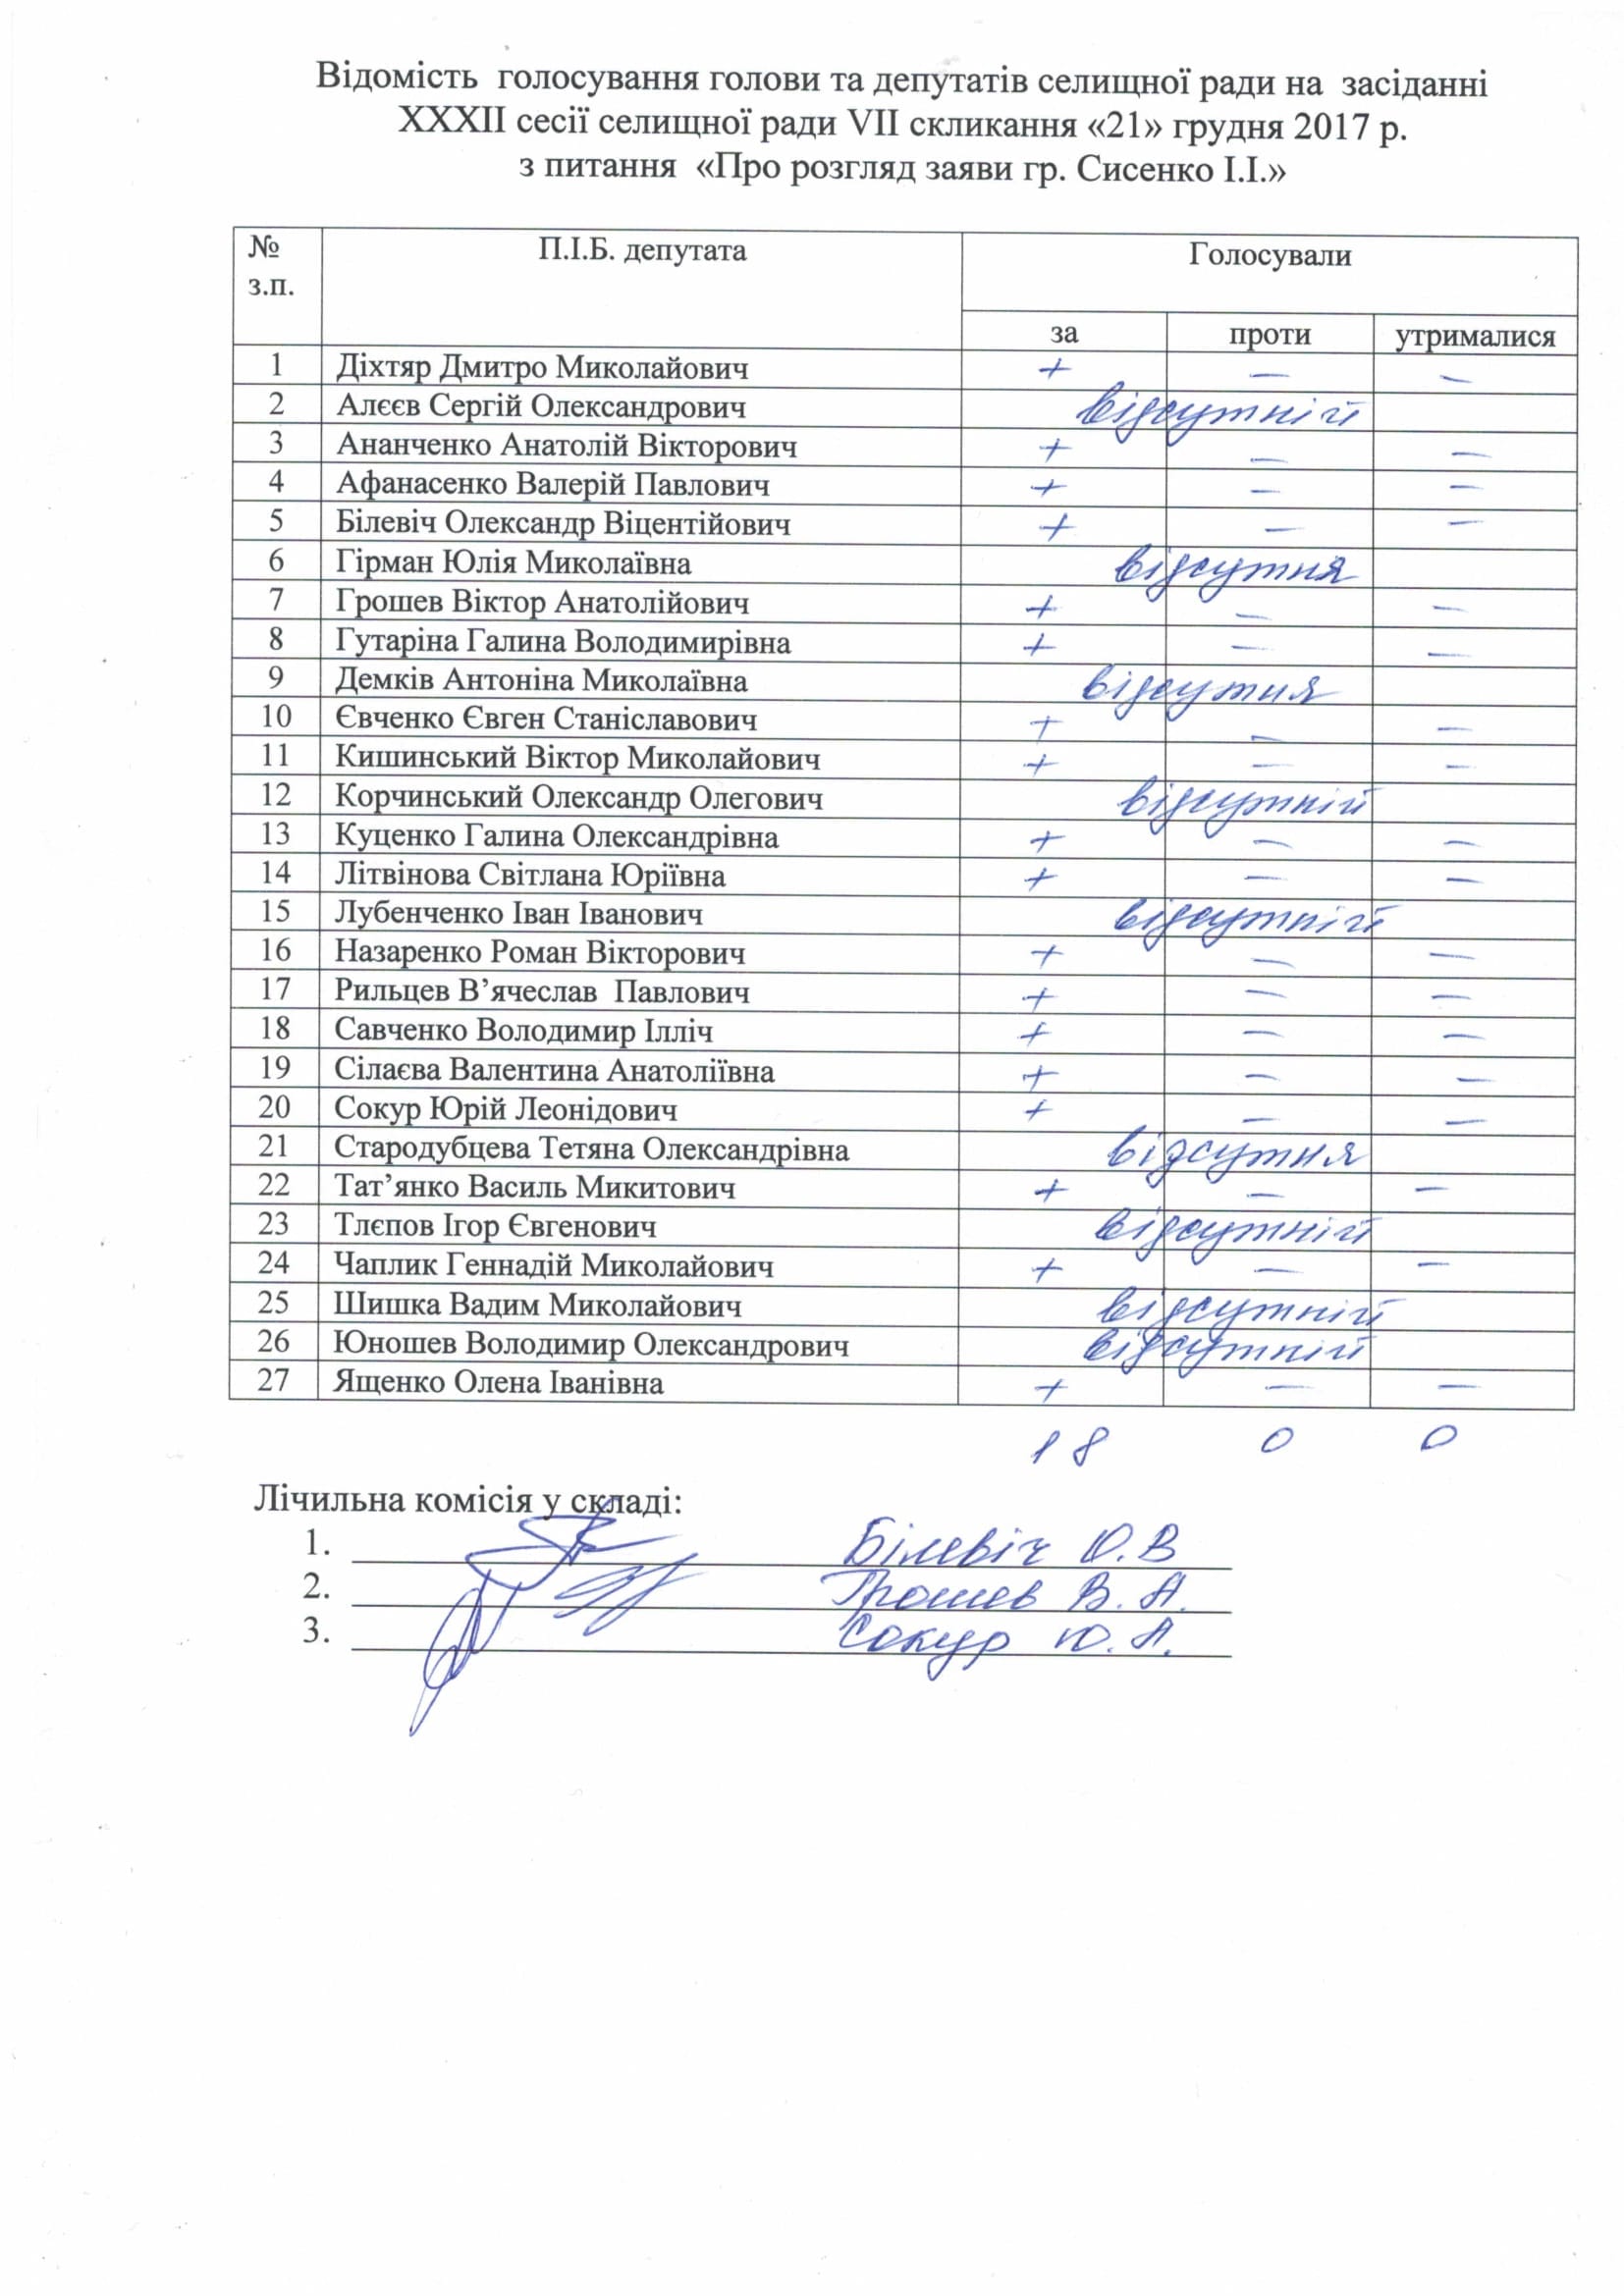 Відомість голосування голови та депутатів селищної ради на засіданні
XXXII сесії селищної ради VII скликання «21» грудня 2017 р.
з питання «Про розгляд заяви гр. Сисенко І.І.»
№ з.п. П.І.Б. депутата Голосували
за проти утрималися
1 Діхтяр Дмитро Миколайович + — —
2 Алєєв Сергій Олександрович відсутній
3 Ананченко Анатолій Вікторович + — —
4 Афанасенко Валерій Павлович + — —
5 Білевіч Олександр Віцентійович + — —
6 Гірман Юлія Миколаївна відсутня
7 Грошев Віктор Анатолійович + — —
8 Гутаріна Галина Володимирівна + — —
9 Демків Антоніна Миколаївна відсутня
10 Євченко Євген Станіславович + — —
11 Кишинський Віктор Миколайович + — —
12 Корчинський Олександр Олегович відсутній
13 Куценко Галина Олександрівна + — —
14 Літвінова Світлана Юріївна + — —
15 Лубенченко Іван Іванович відсутній
16 Назаренко Роман Вікторович + — —
17 Рильцев В’ячеслав Павлович + — —
18 Савченко Володимир Ілліч + — —
19 Сілаєва Валентина Анатоліївна + — —
20 Сокур Юрій Леонідович + — —
21 Стародубцева Тетяна Олександрівна відсутня
22 Тат’янко Василь Микитович + — —
23 Тлєпов Ігор Євгенович відсутній
24 Чаплик Геннадій Миколайович + — —
25 Шишка Вадим Миколайович відсутній
26 Юношев Володимир Олександрович відсутній
27 Ященко Олена Іванівна + — —
18 0 0
Лічильна комісія у складі:
1. Білевіч О.В
2. Грошев В.А.
3. Сокур Ю.Л.